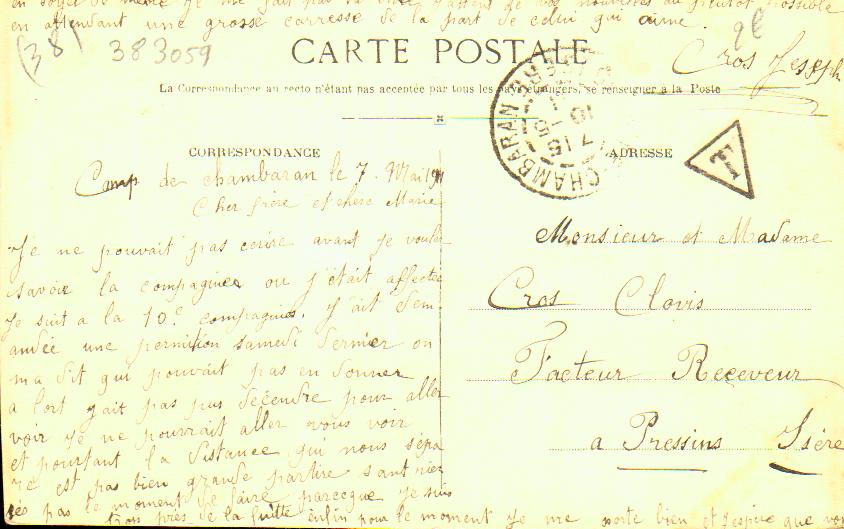 en attendant une grosse carresse de la part de celui qui aime
(38)
383059
CARTE POSTALE
Cros Joseph
La Correspondance au recto n'étant pas acceptée par tous les pays étrangers, se renseigner à la Poste
CHAMBARAN
7-5
T
CORRESPONDANCE
ADRESSE
Camp de chambaran le 7 Mai
Cher frère et chere Marie
Je ne pouvait pas ecrire avant je voulais
savoir la compagnies ou j'était affectee
Je suit a la 10e compagnies. J'ait dem-
andée une permition samedi dernier on
ma dit qui pouvait pas en donner
a lort j'ait pas pus décendre pour aller
voir Je ne pourrait aller vous voir
et pourtant la distance qui nous sépa
re est pas bien grande partire sant rien
pas le moment de faire parecque je suis
trop près de la fuitte enfin pour le moment je me porte bien et j'espère que
Monsieur et Madame
Cros Clovis
Facteur Receveur
a Pressins Isère